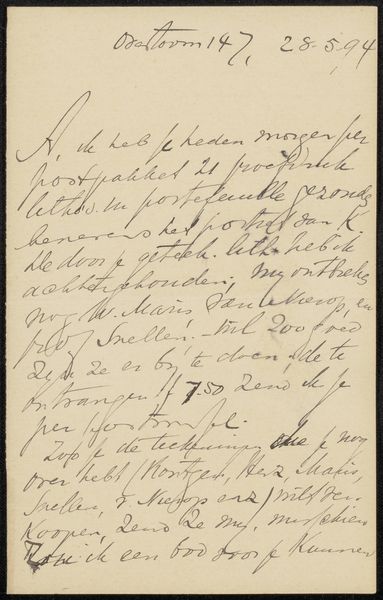 Overtoom 147, 28-5-94
A, ik heb je heden morgen per
postpakket 21 proefdruk
litho's in portefeuille gezonden
benevens het portret van K.
de door je geteek. litho heb ik
achtergehouden; my ontbreken
nog W. Maris van Nierop, en
prof Snellen! wil zoo goed
zijn ze er by te doen! de te
ontvangen f 7.50 zend ik je
per postwissel.
Zoo je de teekeningen die je nog
over hebt (Röntgen, Herz, Maris,
Snellen, v Nierop enz) wilt ver-
koopen, zend ze my, misschien
zou ik een bod door je kunnen